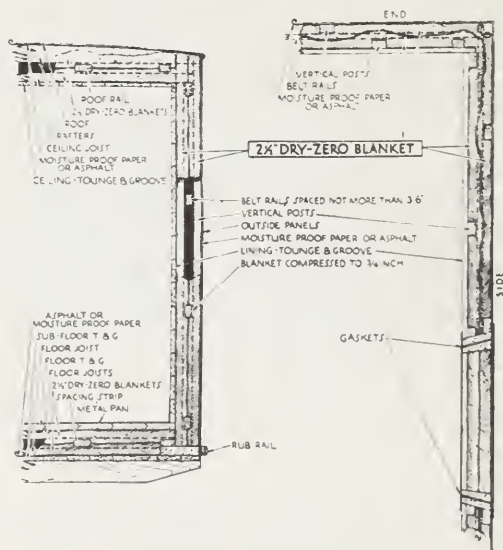 END
VERTICAL POSTS
BELT RAILS
MOISTURE PROOF PAPER
OR ASPHALT
ROOF RAIL
2½" DRY-ZERO BLANKETS
ROOF
RAFTERS
CEILING JOIST
MOISTURE PROOF PAPER
OR ASPHALT
CEILING-TOUNGE & GROOVE
2½" DRY-ZERO BLANKET
BELT RAILS SPACED NOT MORE THAN 3'6"
VERTICAL POSTS
OUTSIDE PANELS
MOISTURE PROOF PAPER OR ASPHALT
LINING-TOUNGE & GROOVE
BLANKET COMPRESSED TO ¾ INCH
SIDE
ASPHALT OR
MOISTURE PROOF PAPER
SUB-FLOOR T & G
FLOOR JOIST
FLOOR T & G
FLOOR JOISTS
2½" DRY-ZERO BLANKETS
SPACING STRIP
METAL PAN
GASKETS
RUB RAIL